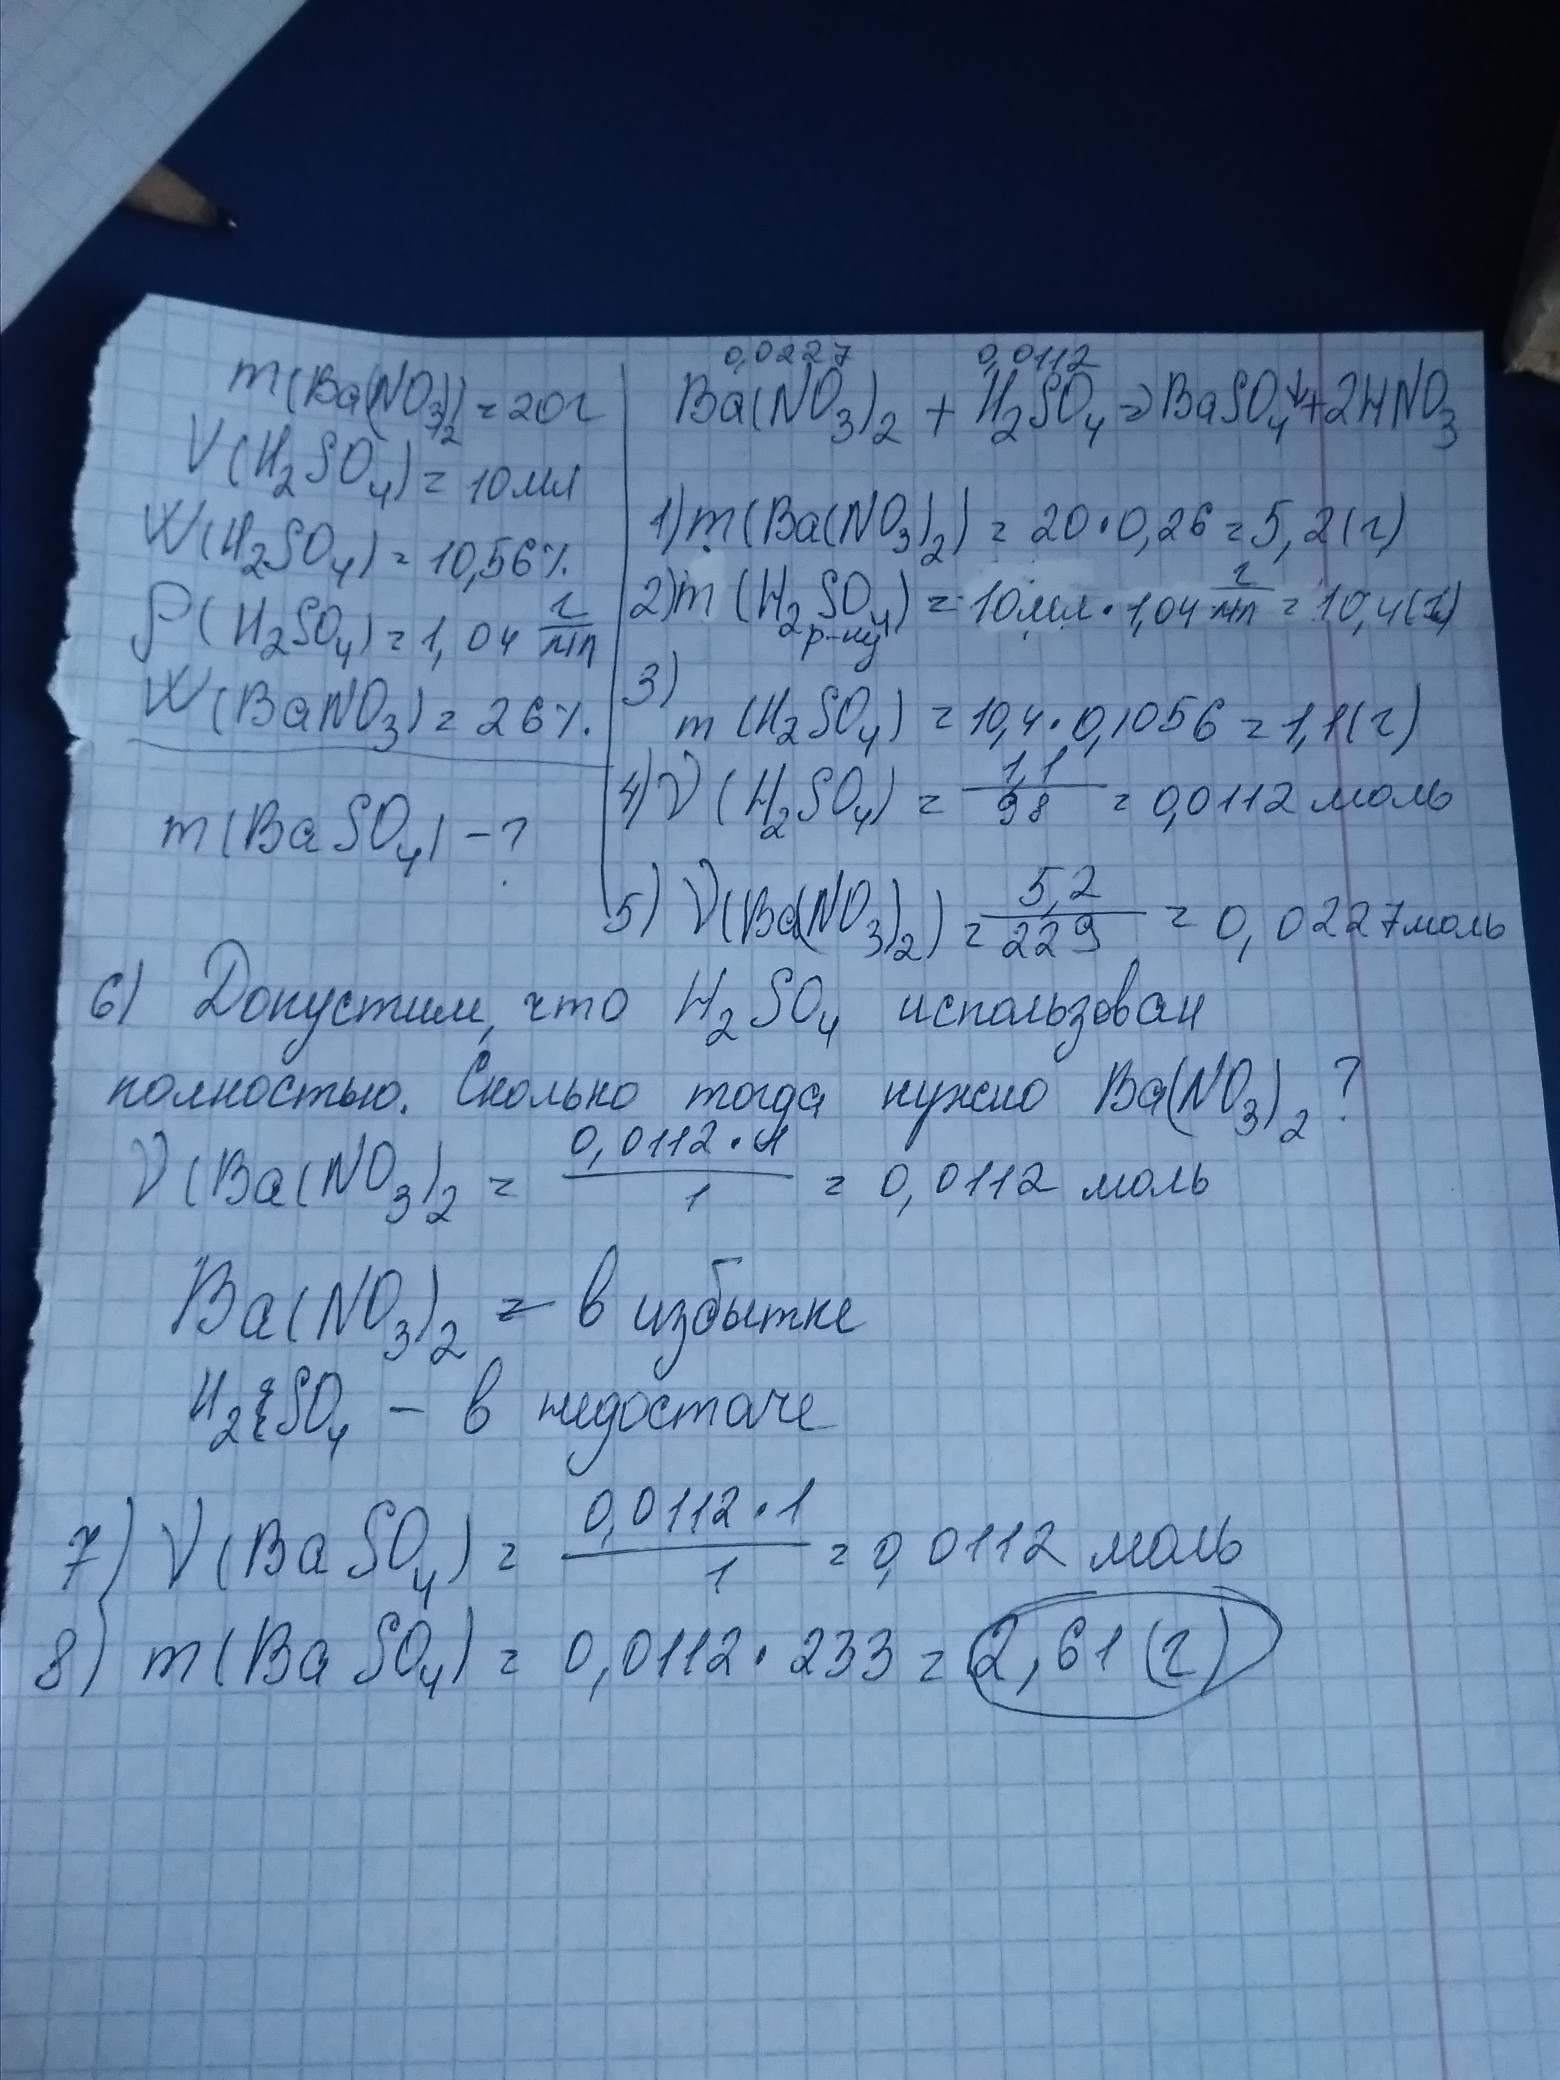 m(Ba(NO3)2) = 20г
V(H2SO4) = 10мл
W(H2SO4) = 10,56%.
ρ(H2SO4) = 1,04 г/мл
W(BaNO3) = 26%.
m(BaSO4) - ?
0,0227 0,0112
Ba(NO3)2 + H2SO4 => BaSO4↓ + 2HNO3
1) m(Ba(NO3)2) = 20 · 0,26 = 5,2(г)
2) m(H2SO4) = 10мл · 1,04 г/мл = 10,4(г)
р-ну
3) m(H2SO4) = 10,4 · 0,1056 = 1,1(г)
4) ν(H2SO4) = 1,1/98 = 0,0112 моль
5) ν(Ba(NO3)2) = 5,2/229 = 0,0227 моль
6) Допустим, что H2SO4 использован
полностью. Сколько тогда нужно Ba(NO3)2?
ν(Ba(NO3)2 = 0,0112 · 1/1 = 0,0112 моль
Ba(NO3)2 - в избытке
H2SO4 - в недостаче
7) ν(BaSO4) = 0,0112 · 1/1 = 0,0112 моль
8) m(BaSO4) = 0,0112 · 233 = 2,61(г)